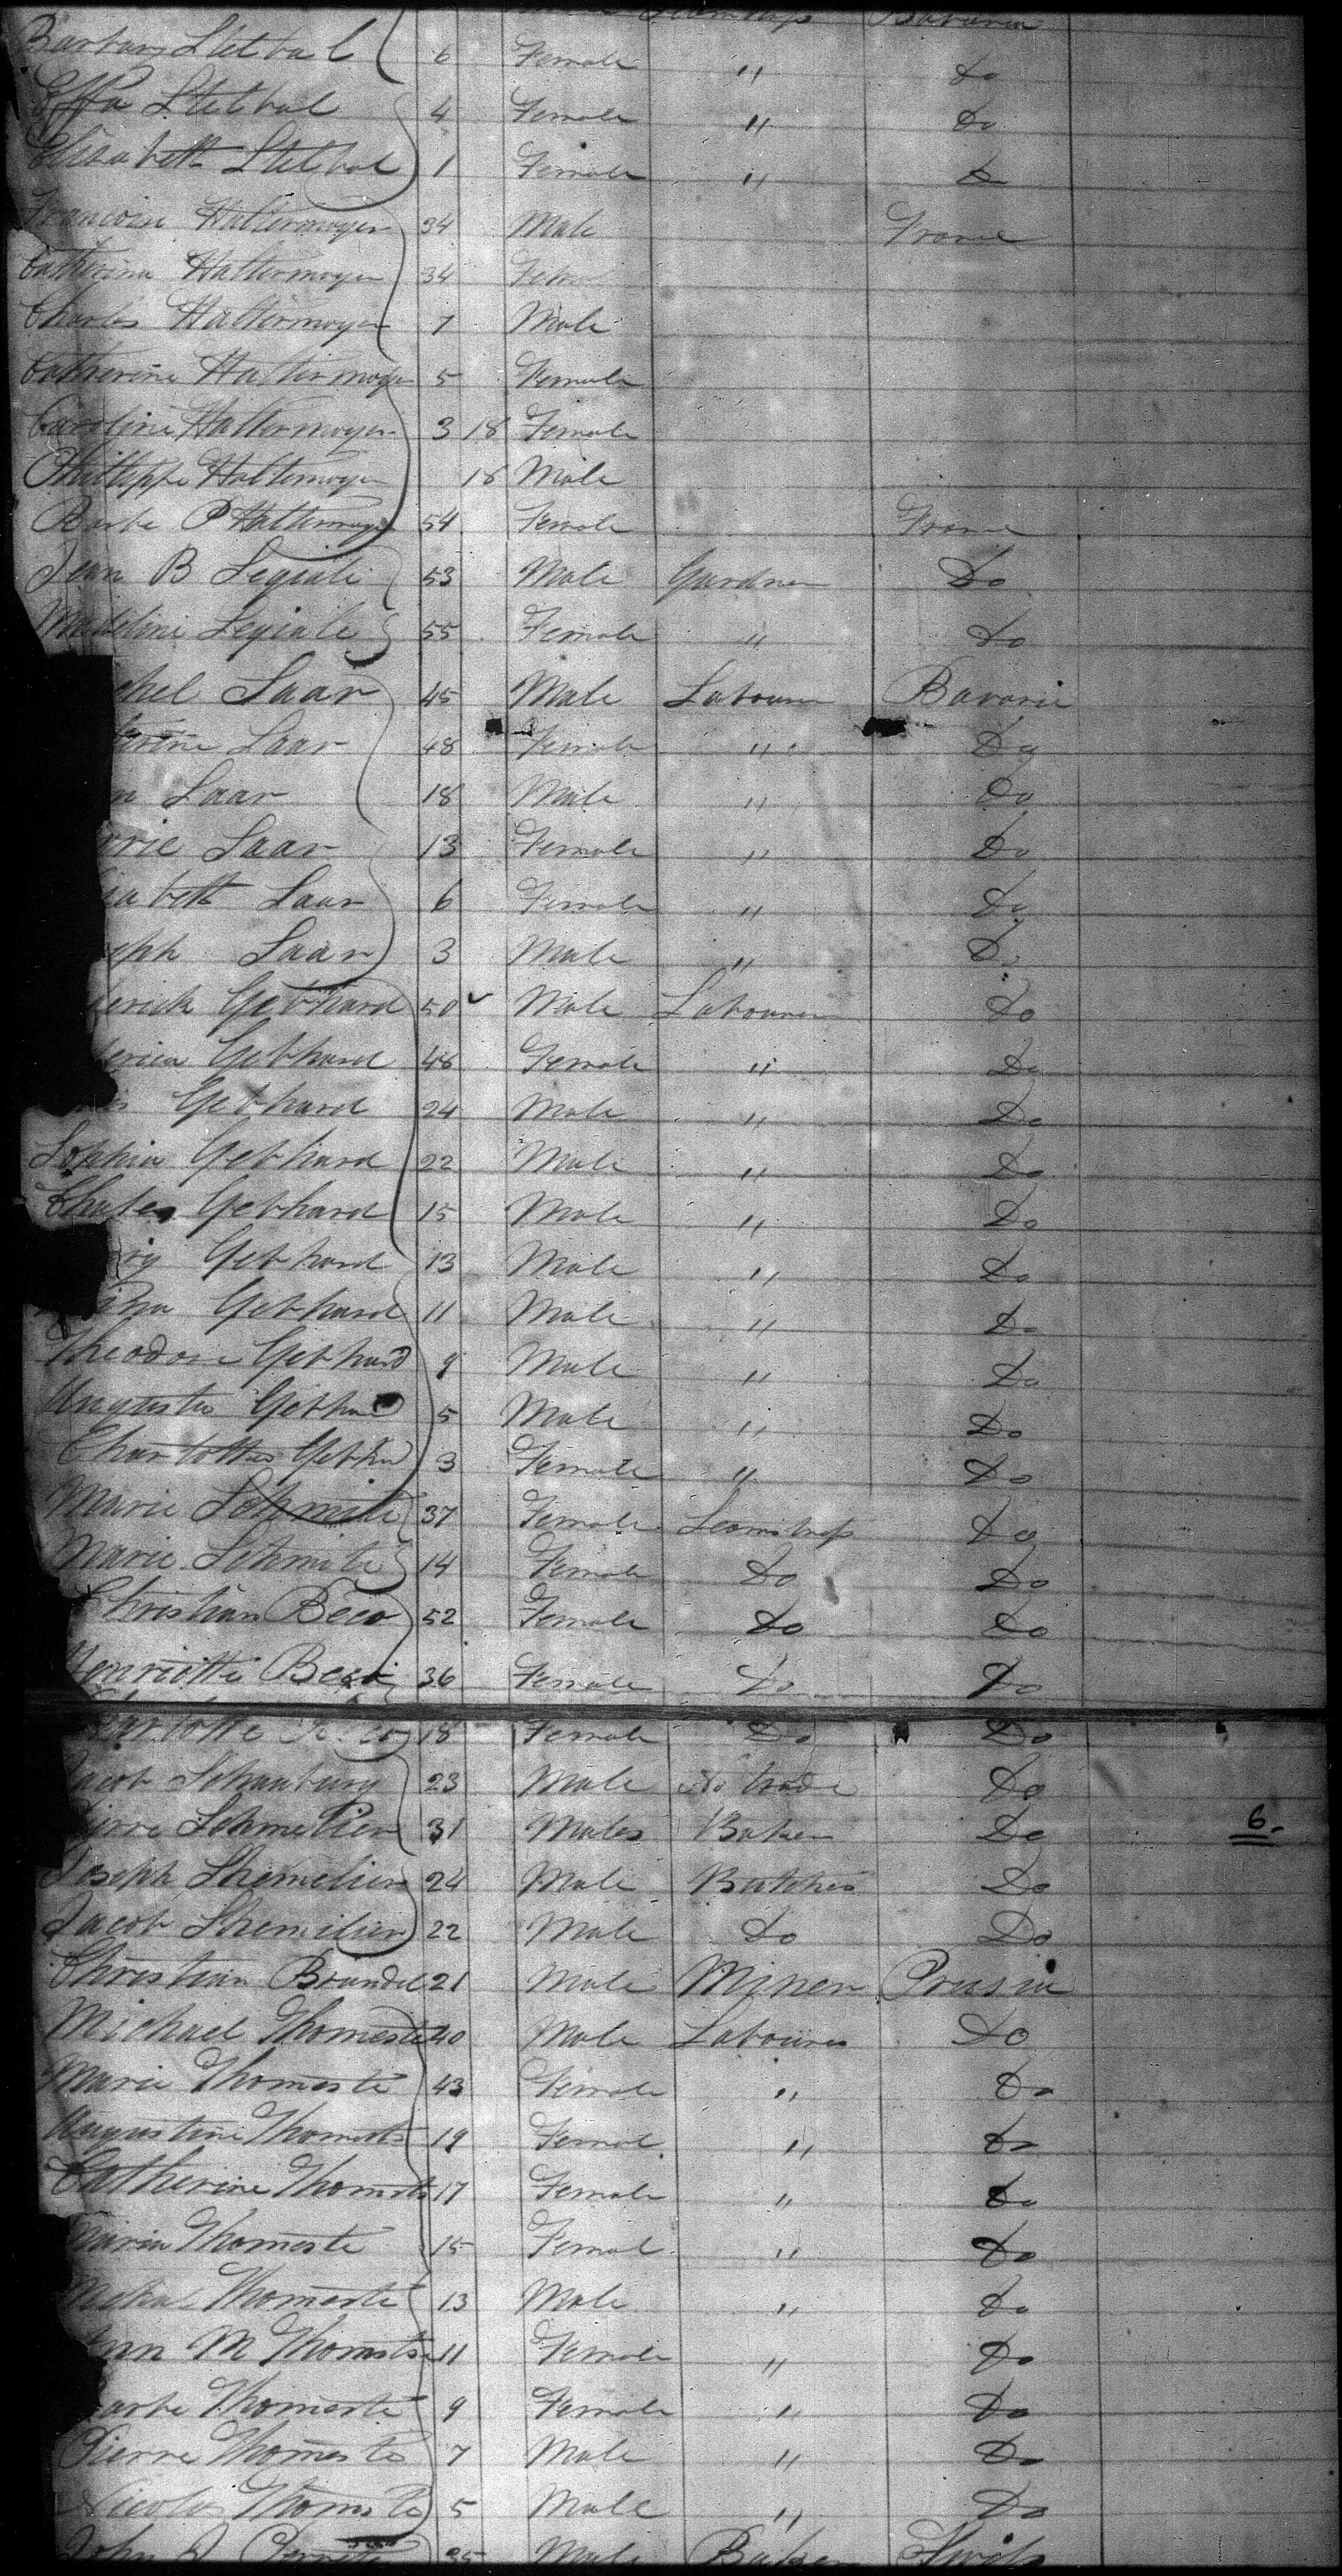 Bavaria
Barbara Stetbal 6 Female " do
Effa Stetbal 4 Female " do
Elisabeth Stetbal 1 Female " do
Francoise Haltermoyer 34 Male France
Catherine Haltermoyer 34 Female
Charles Haltermoyer 7 Male
Catherine Haltermoyer 5 Female
Caroline Haltermoyer 3 18 Female
Philleppe Haltermoyer 18 Male
Barba P Haltermoyer 54 Female France
Jean B Legiale 53 Male Gardner Do
Madeline Legiale 55 Female " do
chel Laar 45 Male Labourer Bavaria
erine Laar 48 Female " Do
n Laar 18 Male " Do
rrie Laar 13 Female " Do
abeth Laar 6 Female " Do
eph Laar 3 Male " Do
derick Gebhard 50 Male Labourer do
derica Gebhard 48 Female " Do
Gebhard 24 Male " Do
Sophia Gebhard 22 Male " Do
Charles Gebhard 15 Male " Do
ry Gebhard 13 Male " Do
Gebhard 11 Male " Do
Theodore Gebhard 9 Male " Do
Augusta Gebhard 5 Male " Do
Charlotta Gebhd 3 Female " Do
Marie Schmitz 37 Female Seamstress do
Marie Schmitz 14 Female Do Do
Christian Beco 52 Female do do
Henriette Beco 36 Female Do Do
Charlotte Beco 18 Female Do Do
Jacob Schauburg 23 Male No trade Do
Pierre Schmelien 31 Males Baker Do 6.
Joseph Shemelien 24 Male Butcher Do
Jacob Shemilien 22 Male do Do
Christian Brundel 21 Male Miner Prusia
Michael Thomeste 40 Male Labourer Do
Marie Thomeste 43 Female " Do
Augustine Thomeste 19 Female " do
Catherine Thomeste 17 Female " do
Maria Thomeste 15 Femal " Do
Thomeste 13 Male " do
Ann M Thomste 11 Female " Do
Barbe Thomeste 9 Female " Do
Pierre Thomeste 7 Male " Do
Nicolas Thomste 5 Male " Do
John J 35 Male Baker